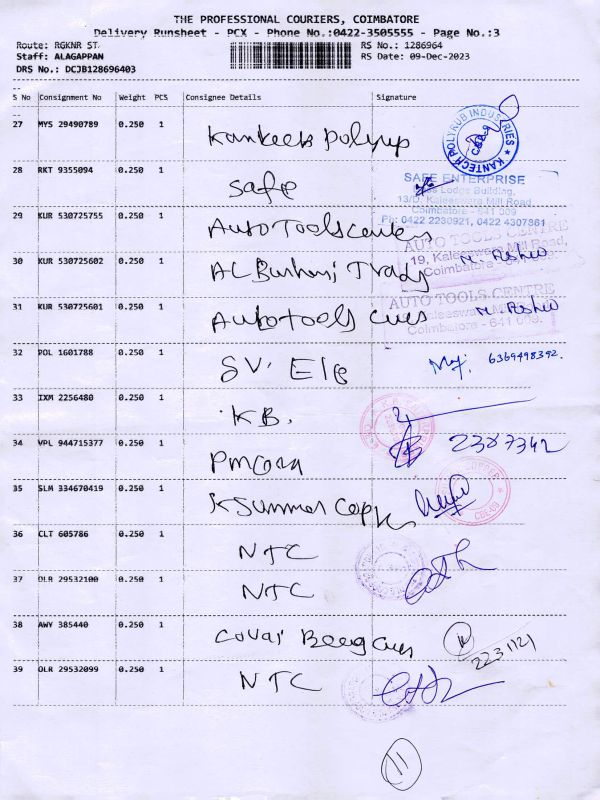 THE PROFESSIONAL COURIERS, COIMBATORE
Delivery Runsheet - PCX - Phone No.:0422-3505555 - Page No.:3
Route: RGKNR ST RS No.: 1286964
Staff: ALAGAPPAN RS Date: 09-Dec-2023
DRS No.: DCJB128696403
S No Consignment No Weight PCS Consignee Details Signature
27 MYS 29490789 0.250 1
KANTECH POLYRUB INDUSTRIES
28 RKT 9355094 0.250 1 Safe
SAFE ENTERPRISE
Lodge Building,
13/D, Kaleeswara Mill Road
Coimbatore - 641 009
Ph: 0422 2230921, 0422 4307861
29 KUR 530725755 0.250 1 Auto Tools
AUTO TOOLS CENTRE
19, Kaleeswara Mill Road,
Coimbatore
30 KUR 530725602 0.250 1 AL
31 KUR 530725601 0.250 1 Autotools
AUTO TOOLS CENTRE
Kaleeswara Mill Road,
Coimbatore - 641 009.
32 POL 1601788 0.250 1 SV. Ele 6369498392.
33 IXM 2256480 0.250 1 KB.
34 VPL 944715377 0.250 1 2387342
35 SLM 334670419 0.250 1
36 CLT 605786 0.250 1 NTC
37 DLR 29532100 0.250 1 NTC
38 AWY 385440 0.250 1 Covai 2231121
39 DLR 29532099 0.250 1 NTC
11